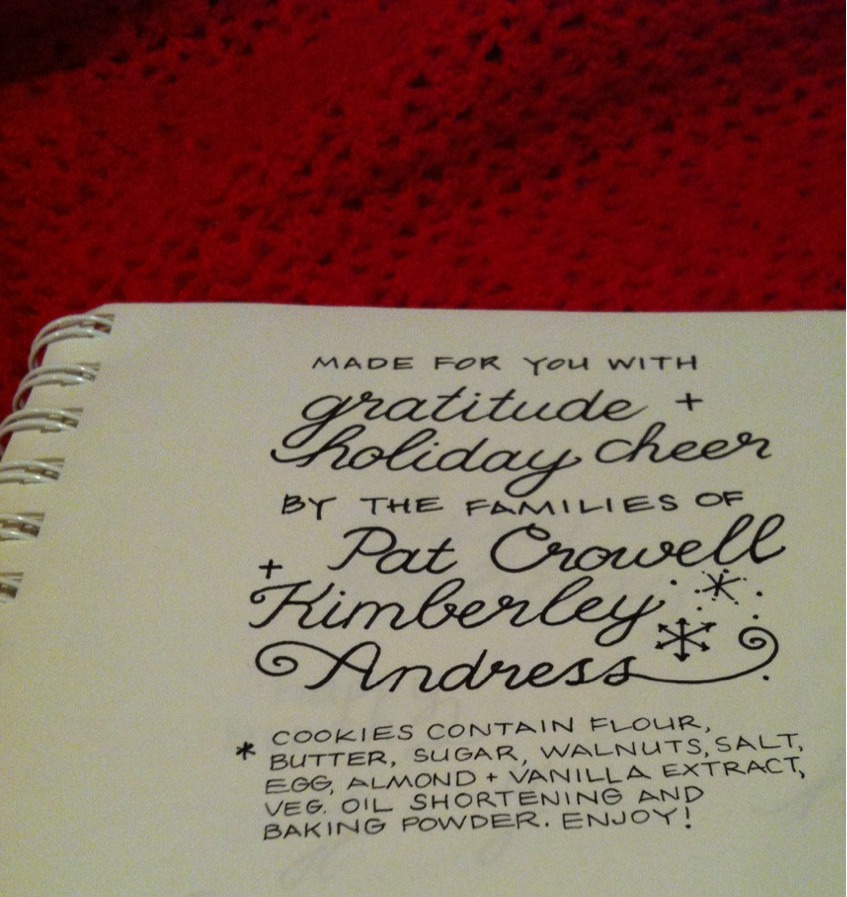 MADE FOR YOU WITH
gratitude +
holiday cheer
BY THE FAMILIES OF
Pat Crowell
+ Kimberley
Andress
* COOKIES CONTAIN FLOUR,
BUTTER, SUGAR, WALNUTS, SALT,
EGG, ALMOND + VANILLA EXTRACT,
VEG. OIL SHORTENING AND
BAKING POWDER. ENJOY!